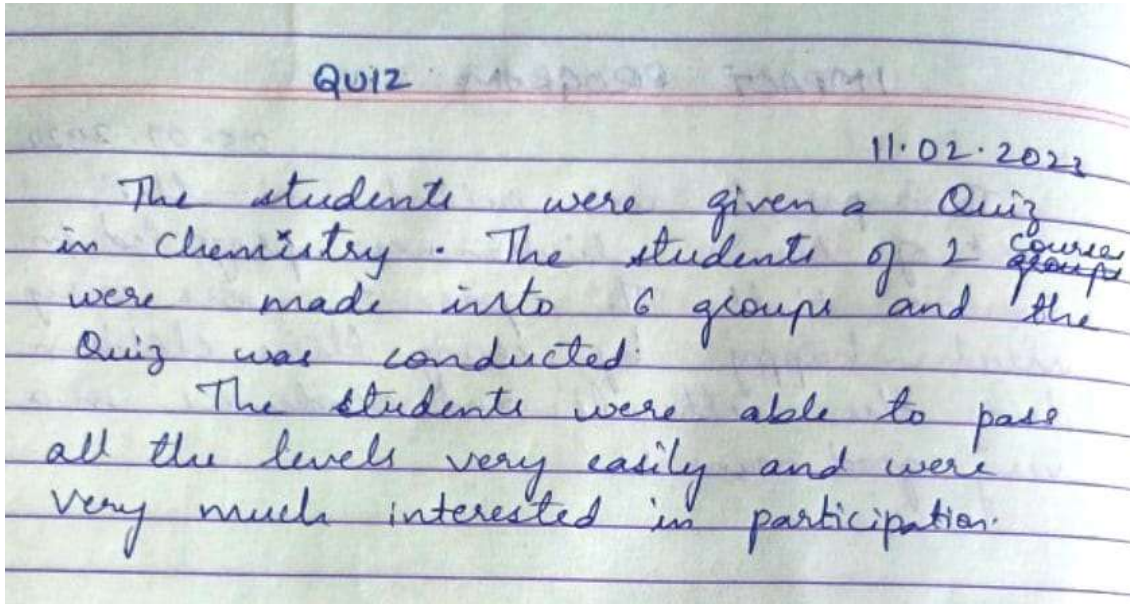 QUIZ
11.02.2023
The students were given a Quiz
in Chemistry. The students of 2 courses
were made into 6 groups and the
Quiz was conducted.
The students were able to pass
all the levels very easily and were
very much interested in participation.